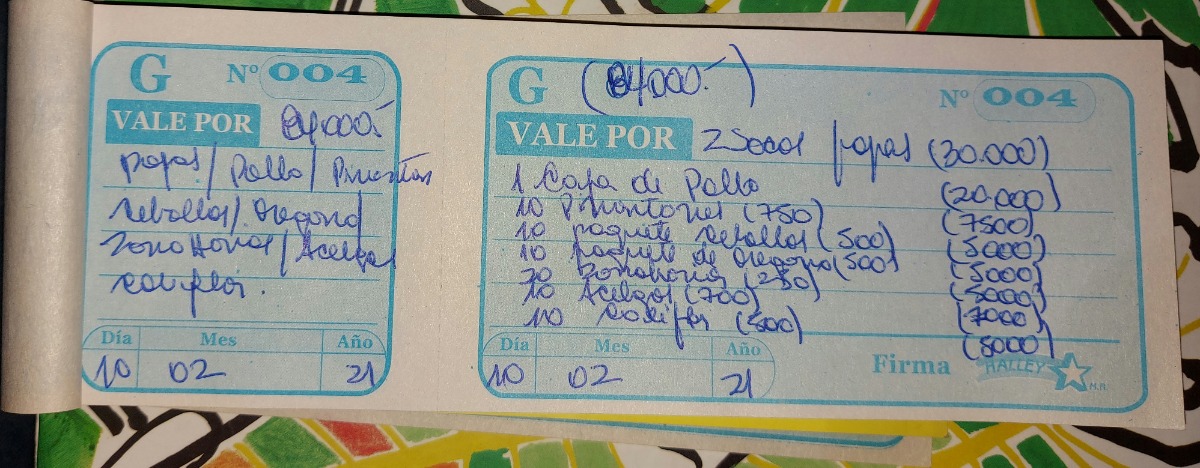 G Nº 004
VALE POR 84000.-
papas / Pollo / Pimentón
sebollas / Oregano
Zonahorias / Acelgas
coliflor.
Día Mes Año
10 02 21
G (84000.-) Nº 004
VALE POR 2 Sacos papas (30.000)
1 Caja de Pollo (20.000)
10 Pimentones (750) (7500)
10 paquete sebollas (500) (5000)
10 paquete de Oregano (500) (5000)
20 Zonahorias (250) (5000)
10 Acelgas (700) (7000)
10 coliflor (500) (5000)
Día Mes Año Firma HALLEY M.R.
10 02 21